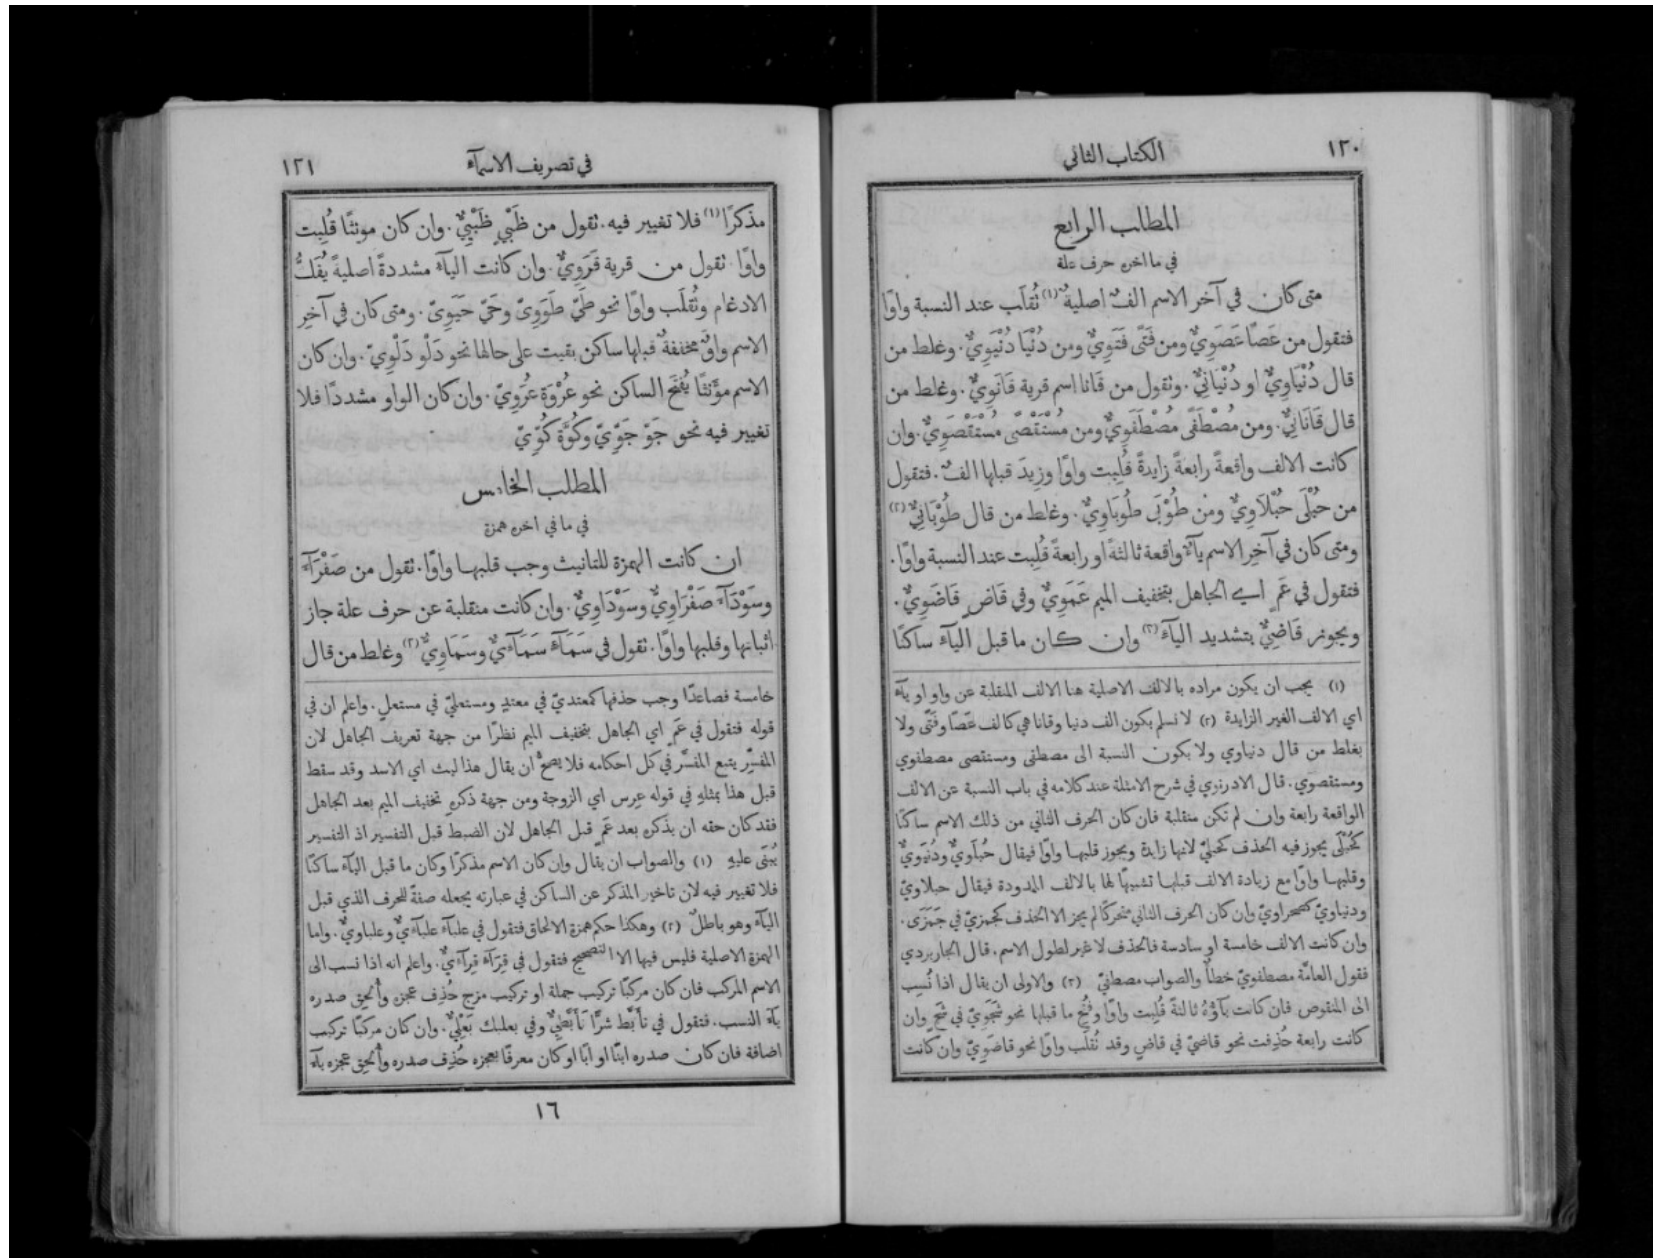 ١٢٠
الكتاب الثاني
المطلب الرابع
في ما اخره حرف علة
متى كان في آخر الاسم الفٌ اصلية(١) تُقلَب عند النسبة واوًا
فتقول من عَصًا عَصَوِيٌّ ومن فَتًى فَتَوِيٌّ ومن دُنْيَا دُنْيَوِيٌّ. وغلط من
قال دُنْيَاوِيٌّ او دُنْيَانِيٌّ. ونقول من قَانا اسم قرية قَانَوِيٌّ. وغلط من
قال قَانَانِيٌّ. ومن مُصْطَفًى مُصْطَفَوِيٌّ ومن مُسْتَقْصًى مُسْتَقْصَوِيٌّ. وان
كانت الالف واقعةً رابعةً زايدةً قُلِبت واوًا وزِيدَ قبلها الفٌ. فتقول
من حُبْلَى حُبْلَاوِيٌّ ومن طُوْبَى طُوبَاوِيٌّ. وغلط من قال طُوْبَانِيٌّ(٢)
ومتى كان في آخِر الاسم يآءٌ واقعة ثالثةً او رابعةً قُلِبت عند النسبة واوًا.
فتقول في عَمٍ اي الجاهل بتخفيف الميم عَمَوِيٌّ وفي قاضٍ قَاضَوِيٌّ.
ويجوز قَاضِيٌّ بتشديد اليآء(٣) وان كان ما قبل اليآء ساكنًا
(١) يجب ان يكون مراده بالالف الاصلية هنا الالف المنقلبة عن واو او يآء
اي الالف الغير الزايدة (٢) لا نسلم بكون الف دنيا وقانا هي كالف عَصًا وفَتًى ولا
بغلط من قال دنياوي ولا بكون النسبة الى مصطفى ومستقصى مصطفوي
ومستقصوي. قال الادرنوي في شرح الامثلة عند كلامه في باب النسبة عن الالف
الواقعة رابعة وان لم تكن منقلبة فان كان الحرف الثاني من ذلك الاسم ساكنًا
كحُبْلَى يجوز فيه الحذف كحبليّ لانها زايدة ويجوز قلبها واوًا فيقال حُبْلَوِيٌّ ودُنْيَوِيٌّ
وقلبها واوًا مع زيادة الالف قبلها تشبيهًا لها بالالف الممدودة فيقال حبلاويّ
ودنياويّ كصحراويّ وان كان الحرف الثاني متحركًا لم يجز الا الحذف كجمزيّ في جَمَزَى.
وان كانت الالف خامسة او سادسة فالحذف لا غير لطول الاسم. قال الجاربردي
فقول العامَّة مصطفويّ خطأٌ والصواب مصطفيّ (٣) والاولى ان يقال اذا نُسِب
الى المنقوص فان كانت يآؤُهُ ثالثةً قُلِبت واوًا وفُتِح ما قبلها نحو شَجَوِيّ في شَجٍ وان
كانت رابعة حُذِفت نحو قاضيّ في قاضٍ وقد تُقلَب واوًا نحو قاضَوِيّ وان كانت
في تصريف الاسمآء
١٢١
مذكرًا(١) فلا تغيير فيه. تقول من ظَبْيٍ ظَبْيِيٌّ. وان كان مونثًا قُلِبت
واوًا. تقول من قرية قَرَوِيٌّ. وان كانت اليآء مشددةً اصليةً يُفَكُّ
الادغام وتُقلَب واوًا نحو طَيّ طَوَوِيّ وحَيّ حَيَوِيّ. ومتى كان في آخِر
الاسم واوٌ مخففةٌ قبلها ساكن بقيت على حالها نحو دَلْو دَلْوِيّ. وان كان
الاسم مؤَنثًا يُفتَح الساكن نحو عُرْوَة عُرَوِيّ. وان كان الواو مشددًا فلا
تغيير فيه نحو جَوّ جَوِّيّ وكُوَّة كُوِّيّ
المطلب الخامس
في ما في اخره همزة
ان كانت الهمزة للتانيث وجب قلبها واوًا. تقول من صَفْرَآء
وسَوْدَآء صَفْرَاوِيٌّ وسَوْدَاوِيٌّ. وان كانت منقلبة عن حرف علة جاز
اثباتها وقلبها واوًا. تقول في سَمَآء سَمَآءيٌّ وسَمَاوِيٌّ(٢) وغلط من قال
خامسة فصاعدًا وجب حذفها كمعتديّ في معتدٍ ومستعليّ في مستعلٍ. واعلم ان في
قوله فتقول في عَمٍ اي الجاهل بتخفيف الميم نظرًا من جهة تعريف الجاهل لان
المفسِّر يتبع المفسَّر في كل احكامه فلا يصحُّ ان يقال هذا ليث اي الاسد وقد سقط
قبل هذا بمثلهِ في قوله عِرس اي الزوجة ومن جهة ذكرهِ تخفيف الميم بعد الجاهل
فقد كان حقه ان يذكره بعد عَمٍ قبل الجاهل لان الضبط قبل التفسير اذ التفسير
يُبنَى عليهِ (١) والصواب ان يقال وان كان الاسم مذكرًا وكان ما قبل اليآء ساكنًا
فلا تغيير فيه لان تاخير المذكر عن الساكن في عبارته يجعله صفةً للحرف الذي قبل
اليآء وهو باطلٌ (٢) وهكذا حكم همزة الالحاق فتقول في علبآء علبآءيٌّ وعلباويٌّ. واما
الهمزة الاصلية فليس فيها الا التصحيح فتقول في قرآء قرآءيٌّ. واعلم انه اذا نسب الى
الاسم المركب فان كان مركبًا تركيب جملة او تركيب مزج حُذِف عجزه وأُلحِق صدره
يآء النسب. فتقول في تأَبَّط شرًّا تأَبَّطِيٌّ وفي بعلبك بَعْلِيٌّ. وان كان مركبًا تركيب
اضافة فان كان صدره ابنًا او ابًا او كان معرفًا بعجزه حُذِف صدره وأُلحِق عجزه يآء
١٦